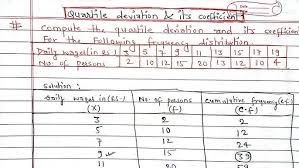 Quartile deviation & its coefficient
Compute the quartile deviation and its coefficient
For the following frequency distribution
Daily wages (in RS) 3 5 7 9 11 13 15 17 19
No of persons 2 10 12 15 20 13 12 10 4
Solution:
Daily wages (in RS.) No. of persons Cumulative frequency (c.f)
(X) (F) (C.F)
3 2 2
5 10 12
7 12 24
9 15 39
11 20 59